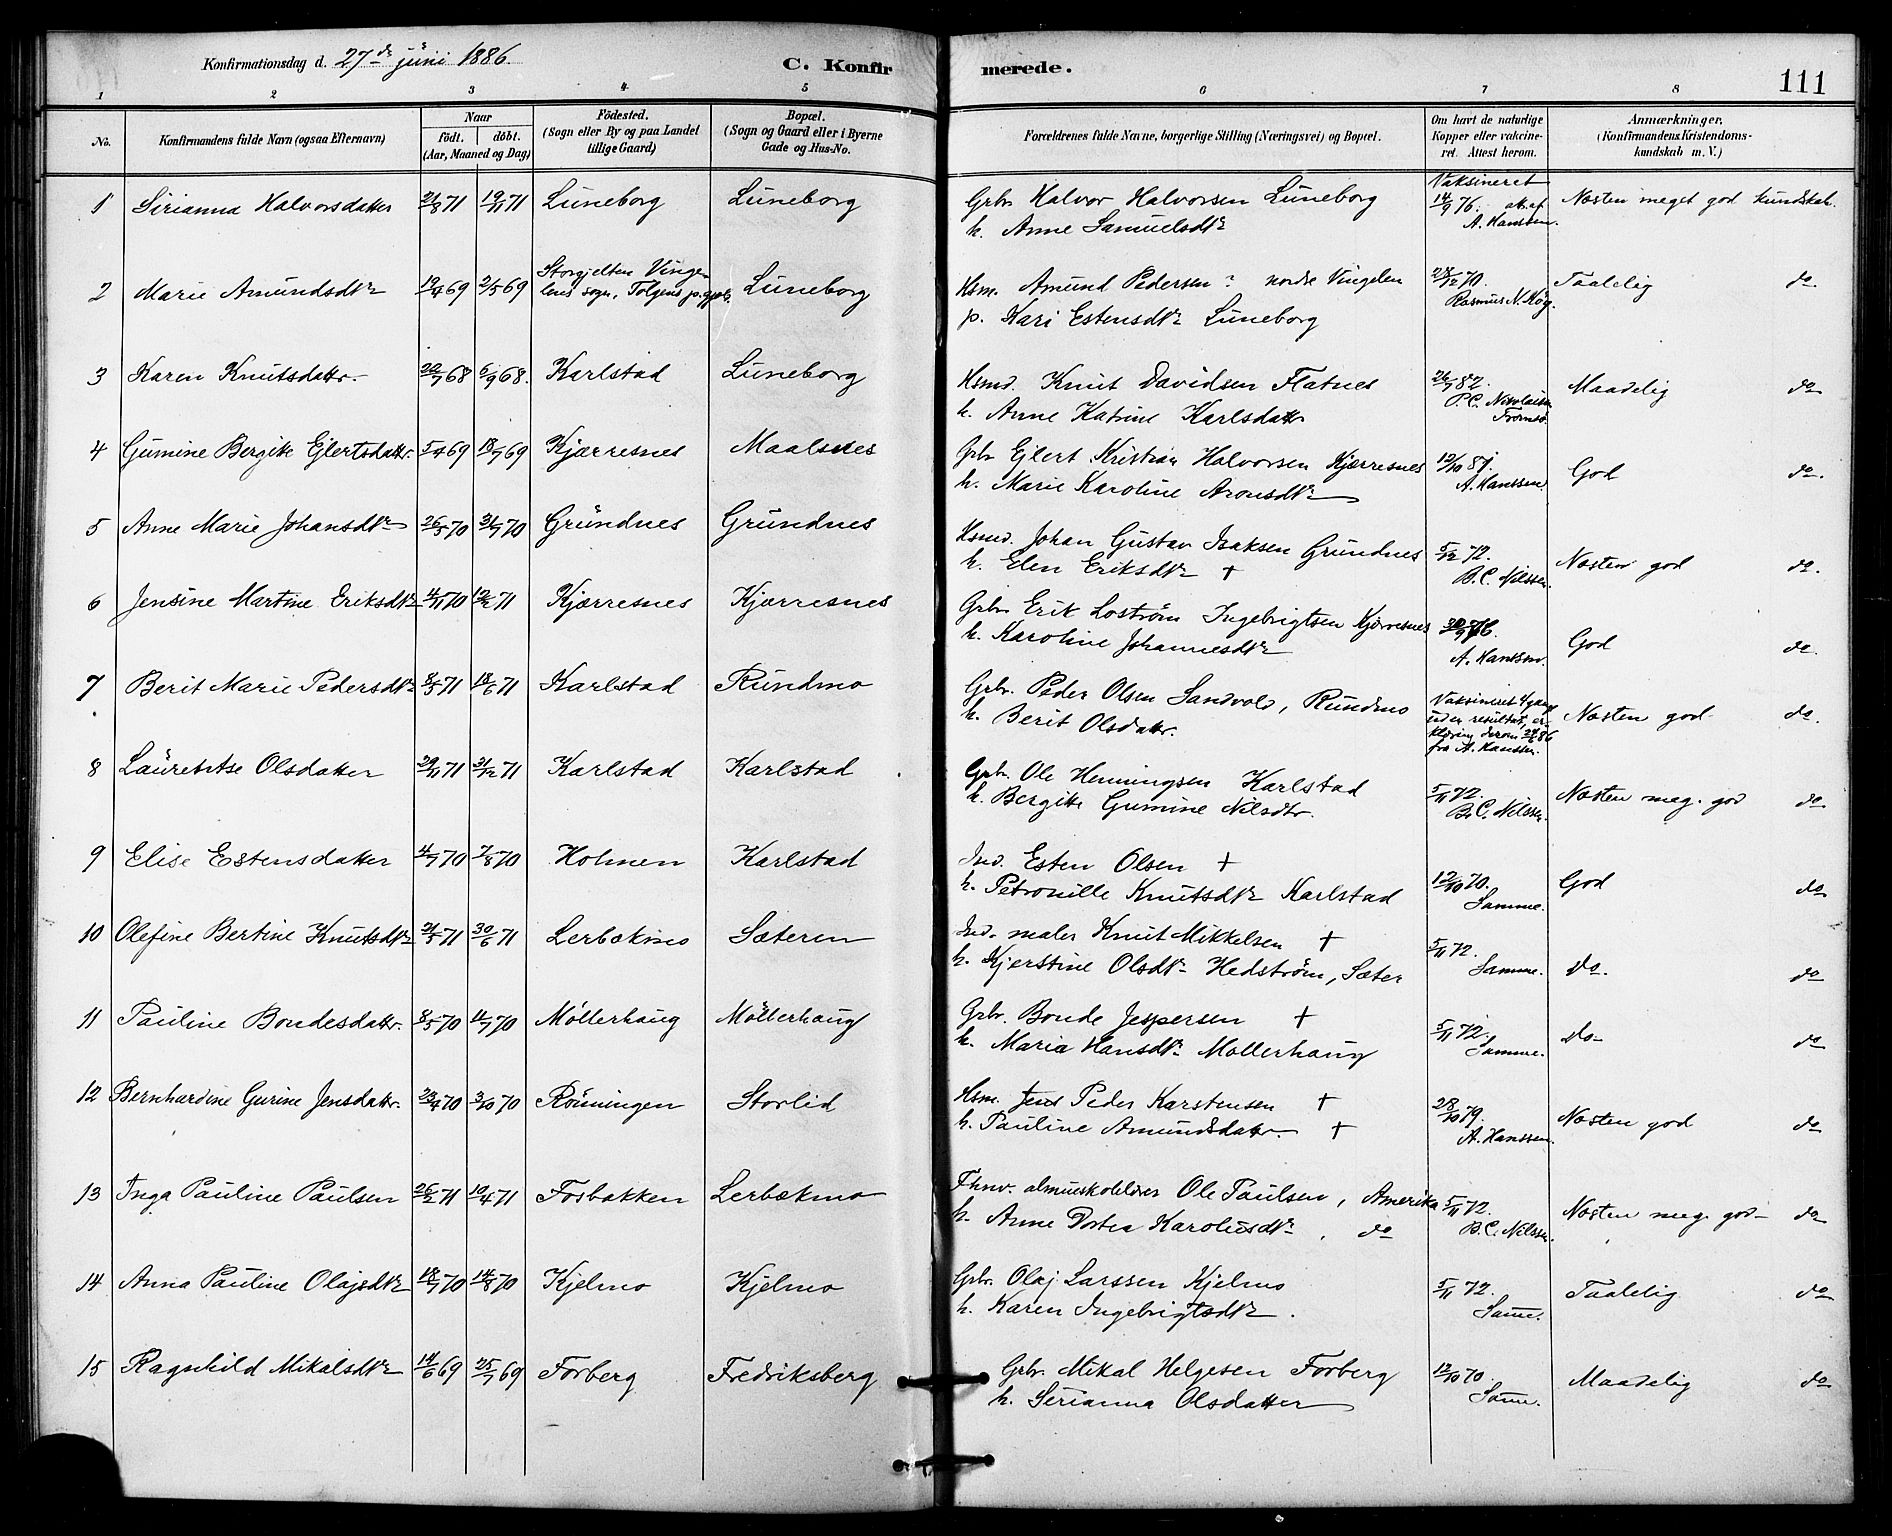 Konfirmationsdag d. 27de juni 1886.
C. Konfirmerede.
111
1 2 3 4 5 6 7 8
No.
Konfirmandens fulde Navn (ogsaa Efternavn)
Naar
födt. döbt.
(Aar, Maaned og Dag)
Födested.
(Sogn eller By og paa Landet
tillige Gaard)
Bopæl.
(Sogn og Gaard eller i Byerne
Gade og Hus-No.
Forældrenes fulde Navne, borgerlige Stilling (Næringsvei) og Bopæl.
Om havt de naturlige
Kopper eller vakcine-
ret. Attest herom.
Anmærkninger,
(Konfirmandens Kristendoms-
kundskab m. V.)
1 Sirianna Halvorsdatter 21/8 71 19/11 71 Luneborg Luneborg Grbr. Halvor Halvorsen Luneborg Vaksineret
h. Anne Samuelsdtr 14/9 76. at. af. A. Hanssen. Næsten meget god kundskab.
2 Marie Amundsdtr 19/4 69 2/5 69 Storgjelten Vinge-
lens sogn, Tolgens Luneborg Hsm. Amund Pedersen? nordre Vingelen
p. Kari Estensdtr Luneborg 28/12 70. Rasmus N. Køg. Taalelig do.
3 Karen Knutsdatr. 20/7 68 6/9 68. Karlstad Luneborg Hsmd. Knut Davidsen Flatnes
h. Anne Katrine Karlsdattr 26/7 82. P.C. Nikolaisen Tromsø. Maadelig do
4 Gumine Bergitte Ejlertsdattr. 5/4 69 18/7 69 Kjærresnes Maalsnes Grbr. Ejlert Kristian Halvorsen Kjærresnes
h. Marie Karoline Aronsdtr 12/10 81. A. Hanssen. God do.
5 Anne Marie Johansdtr 26/5 70 31/7 70 Grundnes Grundnes Hsmd. Johan Gustav Isaksen Grundnes
h. Elen Eriksdtr † 5/12 72. B.C. Nilssen. Næsten god do.
6 Jensine Martine Eriksdtr 4/11 70 12/2 71 Kjærresnes Kjærresnes Grbr. Erik Lostrøm Ingebrigtsen Kjærresnes
h. Karoline Johannesdtr A. Hanssen. God do.
7 Berit Marie Pedersdtr 8/5 71 18/6 71 Karlstad Rundmo Grbr. Peder Olsen Sandvold, Rundmo
h. Berit Olsdatr. Vaksineret 4 gange
uden resultat, er-
klæring derom 24/6 86
fra A. Hanssen. Næsten god do.
8 Laurentse Olsdatter 29/11 71 31/12 71 Karlstad Karlstad Grbr. Ole Henningsen Karlstad
h. Bergitte Gumine Nilsdtr. 5/11 72. B.C. Nilssen. Næsten meg. god do
9 Elise Estensdatter 4/7 70 7/8 70 Holmen Karlstad Ind. Esten Olsen †
h. Petronille Knutsdtr Karlstad 12/10 70. Samme. God do
10 Olefine Bertine Knutsdtr 21/5 71 30/6 71 Lerbækmo Sæteren Ind. maler Knut Mikkelsen †
h. Kjerstine Olsdtr Hedstrøm, Sæter 5/11 72. Samme. do. do
11 Pauline Bondesdattr. 8/5 70 11/7 70 Møllerhaug Møllerhaug Grbr. Bonde Jespersen †
h. Maria Hansdtr Møllerhaug 5/11 72. Samme. do do
12 Bernhardine Gurine Jensdattr. 23/4 70 3/10 70 Rønningen Storlid Hsm. Jens Peder Karstensen †
h. Pauline Amundsdatr. † 28/10 79. A. Hanssen. Næsten god do
13 Inga Pauline Paulsen 26/2 71 10/4 71 Fosbakken Lerbækmo Fhnv. almueskolelærer Ole Paulsen, Amerika
h. Anne Dortea Karolusdtr, do 5/11 72. B.C. Nilssen. Næsten meg. god do
14 Anna Pauline Olajsdtr 18/7 70 14/8 70 Kjelmo Kjelmo Grbr. Olaj Larssen Kjelmo
h. Karen Ingebrigtsdtr. 5/11 72. Samme. Taalelig do
15 Ragnhild Mikalsdtr 14/6 69 25/7 69 Forberg Fredriksberg Grbr. Mikal Helgesen Forberg
h. Serianna Olsdatter 12/10 70. Samme. Maadelig do